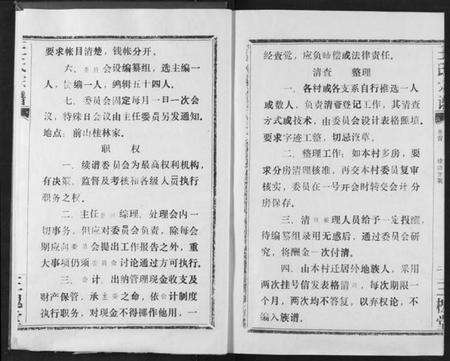 要求帐目清楚，钱帐分开。
六、委员会设编纂组，选主编一
人，编一人，编辑五十四人。
七、委员会固定每月一日一次会
议，特殊日会议由主任委员另发通知。
地点：前山桂林家。
职 权
一、续谱委员会为最高权利机构，
有决策、监督及考核和各级人员执行
职务之权。
二、主任 综理、处理会内一
切事务，但应对委员会负责，除每会
期应向 会提出工作报告之外，重
大事项仍须 会讨论通过方可执行。
三、会计、出纳管理现金收支及
财产保管，承主 之命，依会计制度
执行职务，对现金不得挪作他用，一
经查觉，应负赔偿或法律责任。
清查 整理
一、各村或各支系自行推选一人
或数人，负责清查登记工作，其清查
方式或技术，由委员会设计表格照填。
要求字迹工整，切忌潦草。
二、整理工作：如本村多房，要
求分房清理核准，再交本村委员复审
核实，委员在一号开会时转交会计分
房保存。
三、清 理人员给予一定报酬，
待编纂组录用无惑后，通过委员会研
究，将酬金一次付清。
四、由本村迁居外地族人，采用
两次挂号信发表格清 ，每次期限一
个月，两次均不答复，以弃权论，不
编入族谱。
三槐堂